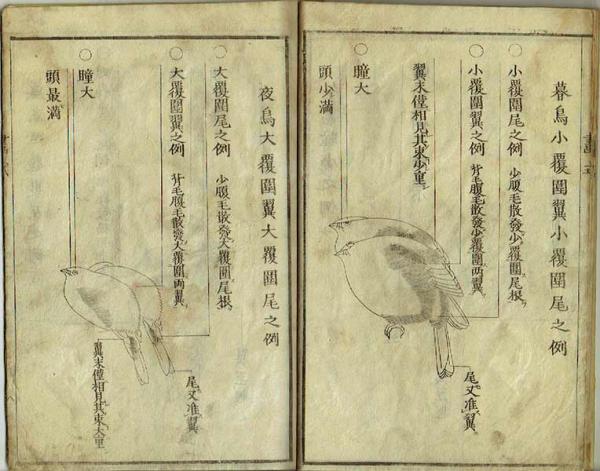 暮鳥小覆圍翼小覆圍尾之例
〇小覆圍尾之例 少腹毛散發少覆圍尾根
〇小覆圍翼之例 背毛腹毛散發少覆圍兩翼
翼末僅相見其束少重
〇瞳大
頭少満
尾又准翼
夜鳥大覆圍翼大覆圍尾之例
〇大覆圍尾之例 少腹毛散發大覆圍尾根
〇大覆圍翼之例 背毛腹毛散發大覆圍兩翼
〇瞳大
頭最満
尾又准翼
翼末僅相見其束大重